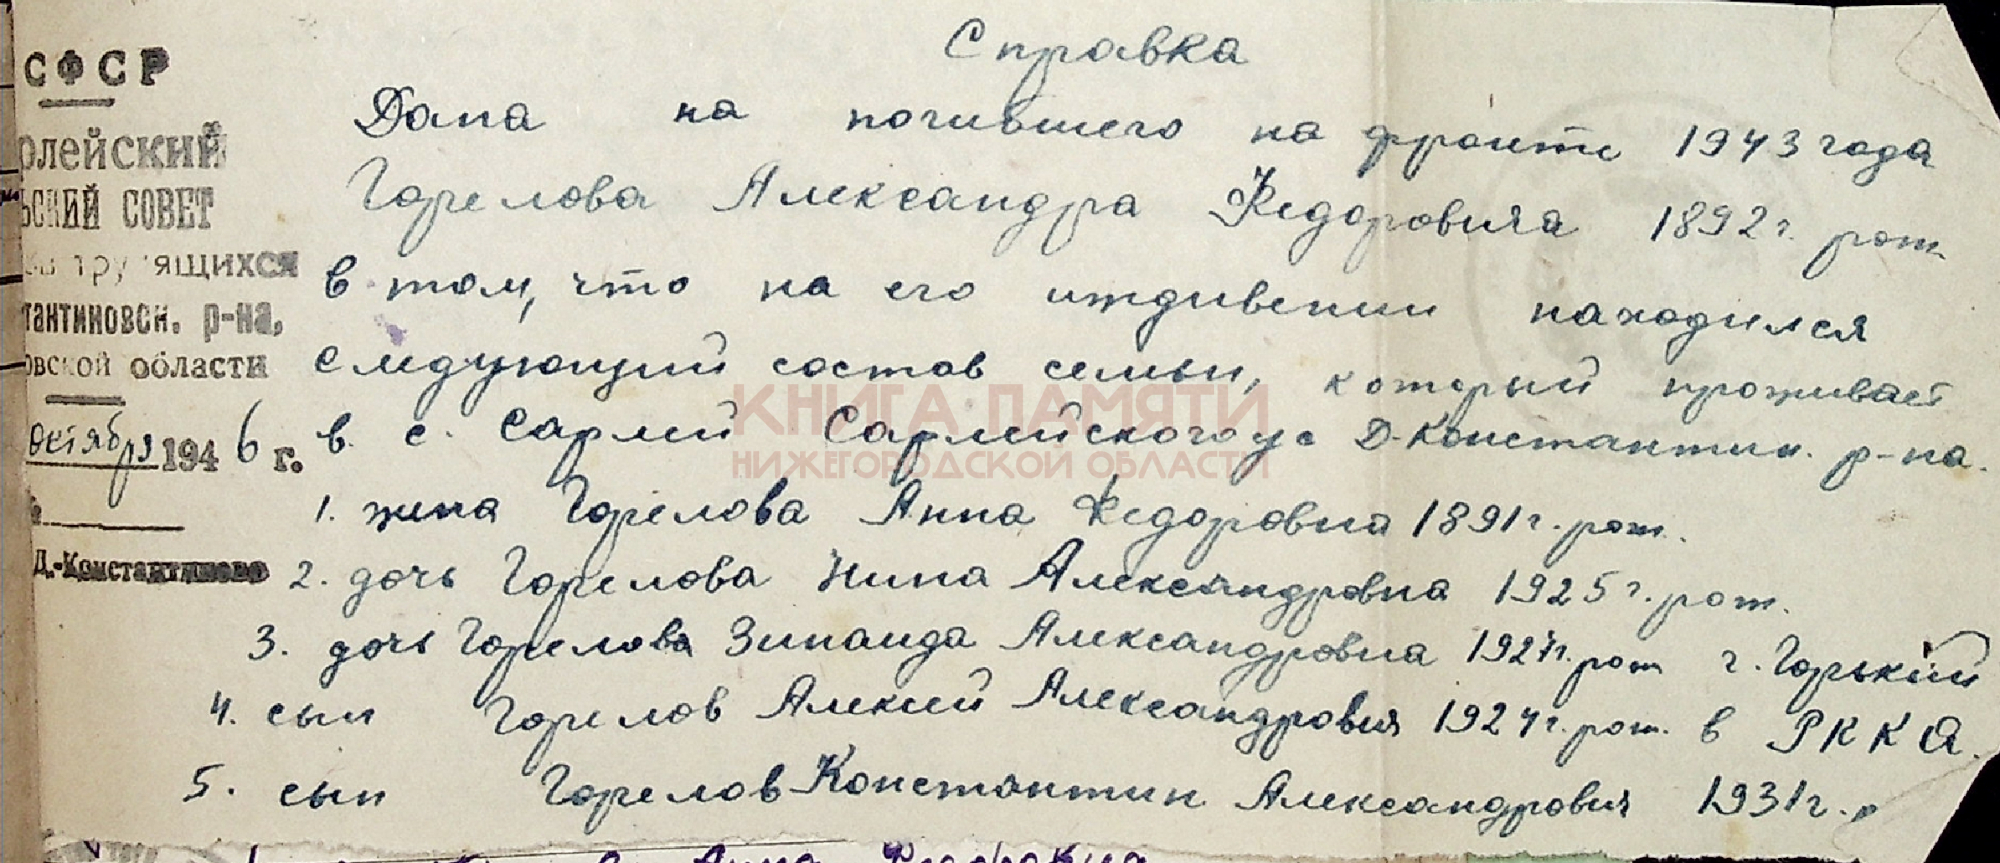 Справка
СФСР
Дана на погибшего на фронте 1943 года
рлейский
Горелова Александра Федоровича 1892 г. рож.
ьский СОВЕТ
в том, что на его иждивении находился
трудящихся
тантиновск. р-на,
следующий состав семьи, который проживает
овской области
КНИГА ПАМЯТИ
НИЖЕГОРОДСКОЙ ОБЛАСТИ
Октября 1946 г.
в. с. Сарлей Сарлейского ус Д-Константин. р-на.
1. жена Горелова Анна Федоровна 1891 г. рож.
Д.-Константиново
2. дочь Горелова Нина Александровна 1925 г. рож.
3. дочь Горелова Зинаида Александровна г. рож г. Горький
4. сын Горелов Алексей Александрович г. рож. в РККА.
5. сын Горелов Константин Александрович 1931 г. р
Анна Федоровна